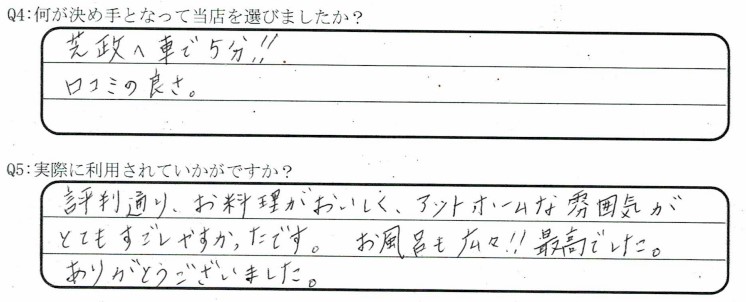 Q4:何が決め手となって当店を選びましたか?
芝政へ車で5分!!
口コミの良さ。
Q5:実際に利用されていかがですか?
評判通り、お料理がおいしく、アットホームな雰囲気が
とてもすごしやすかったです。 お風呂も広々!!最高でした。
ありがとうございました。